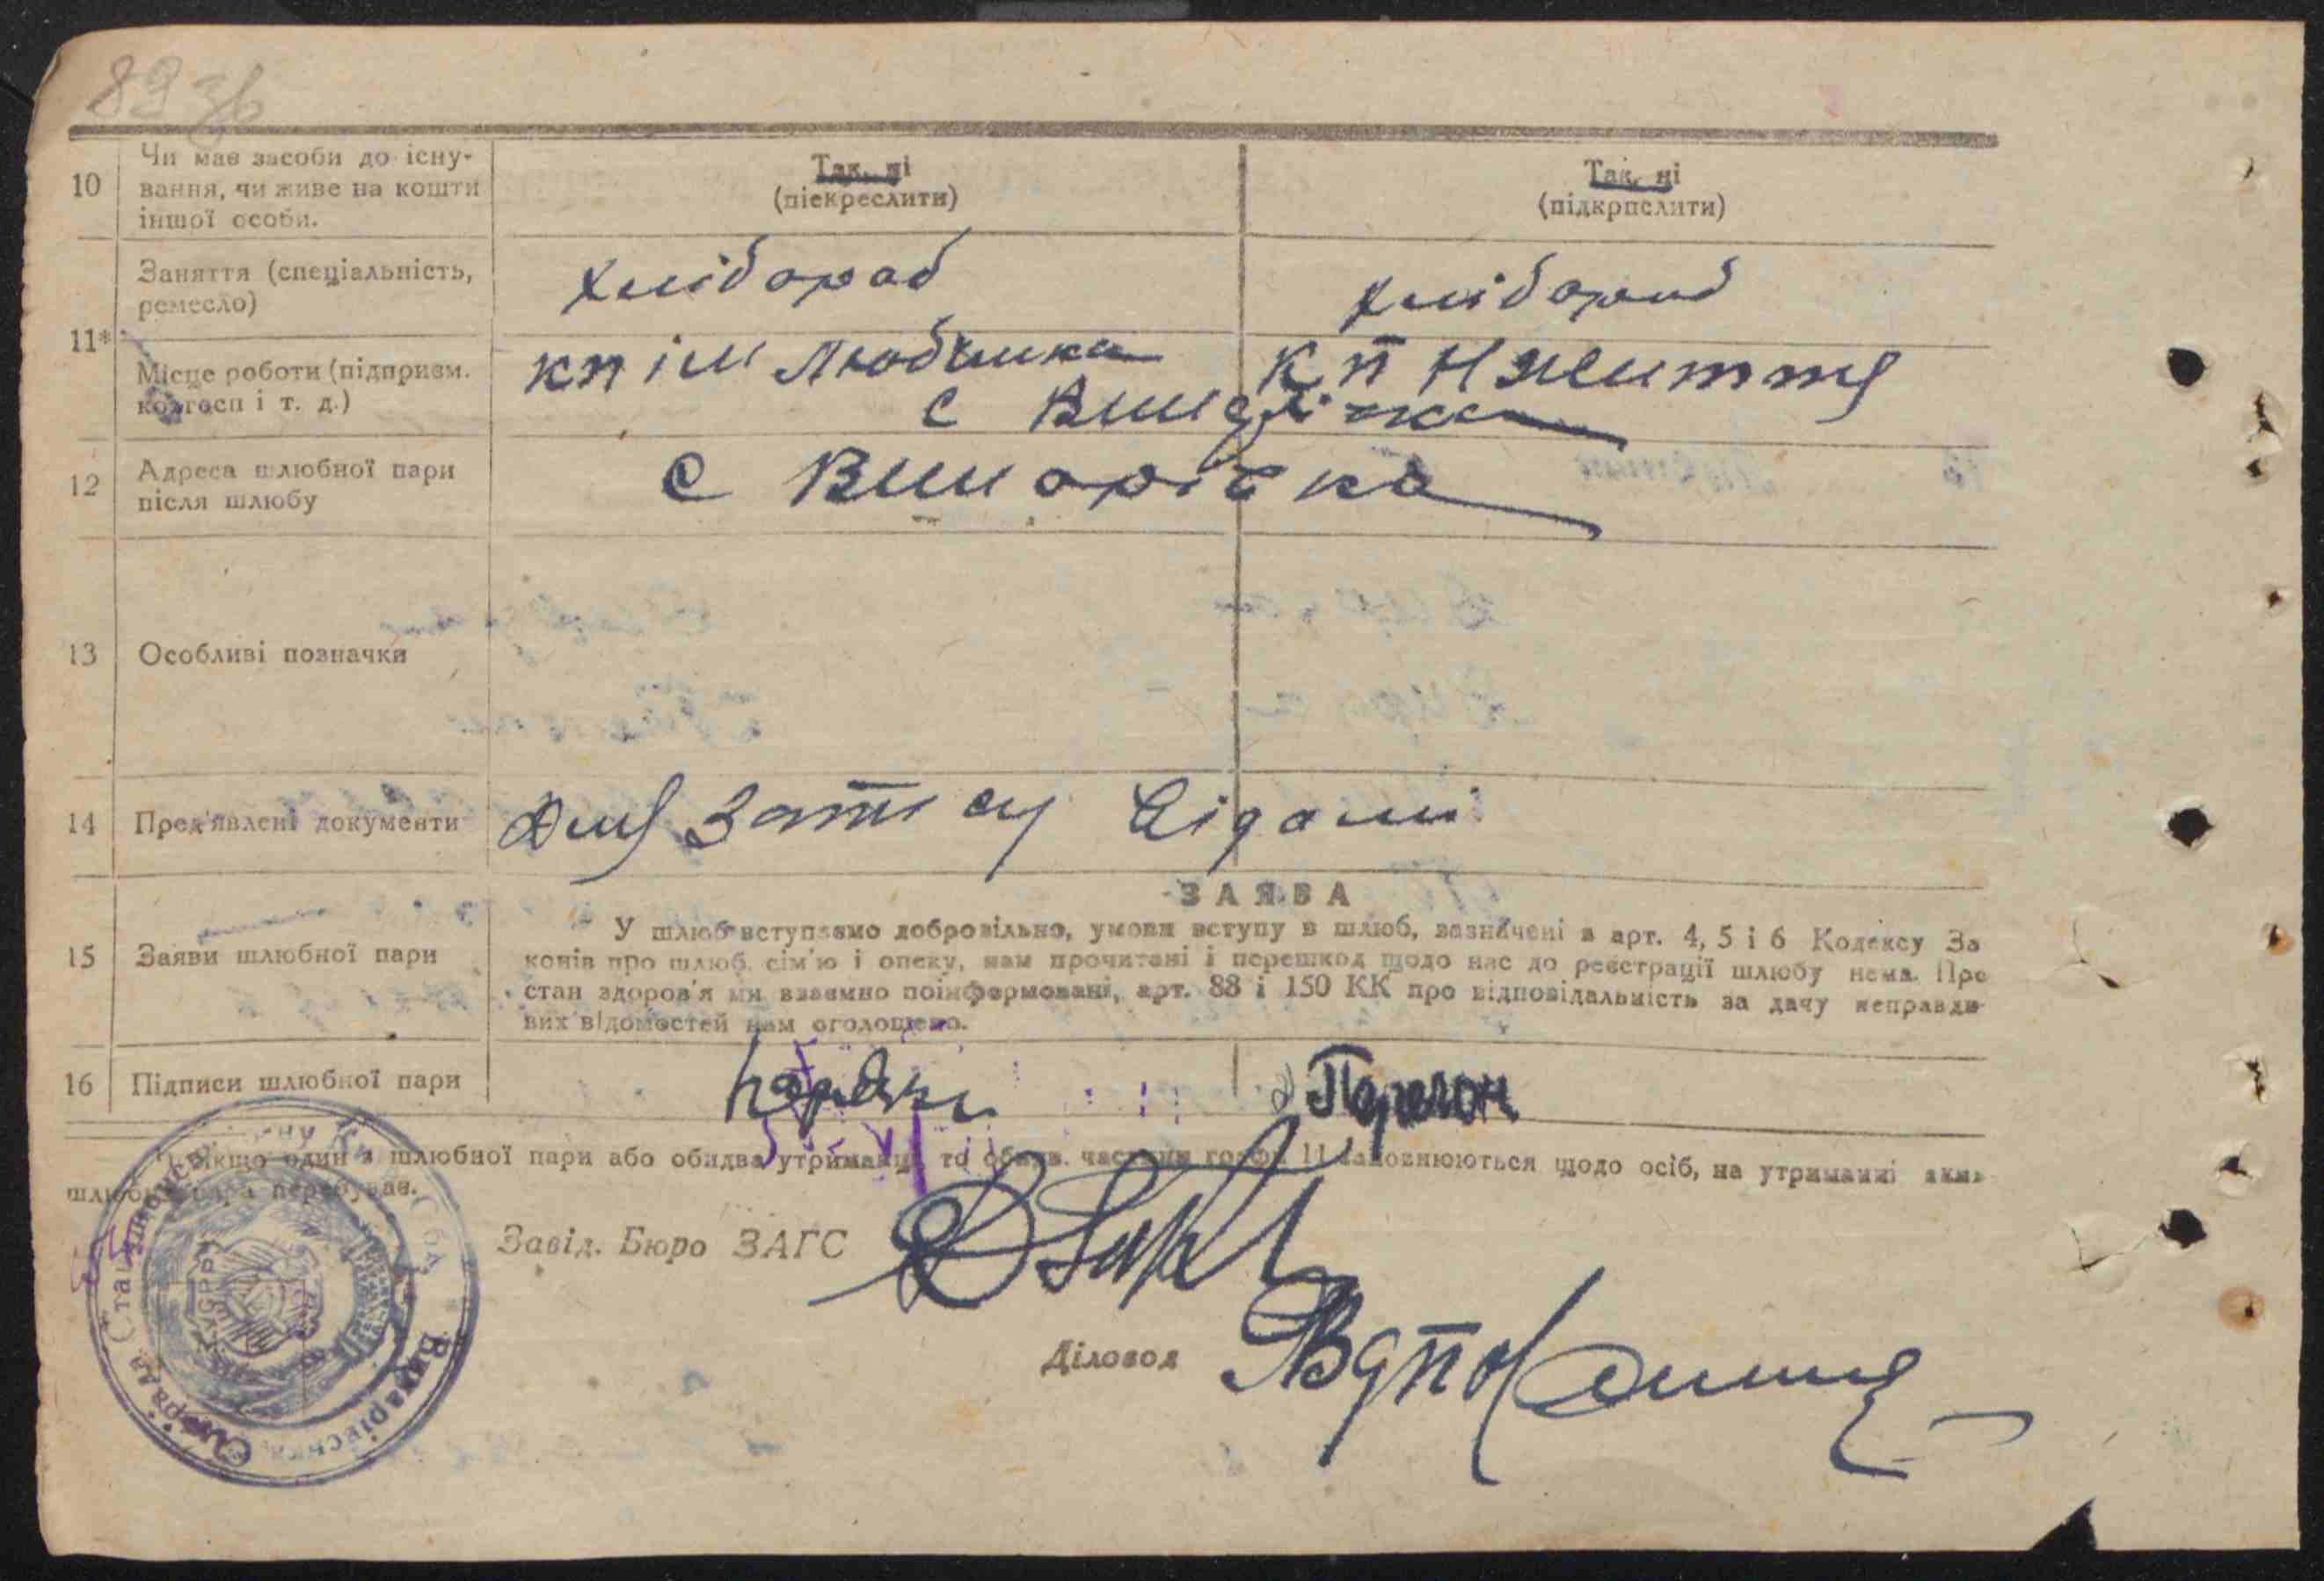 89 зв
10
Чи має засоби до існу-
вання, чи живе на кошти
іншої особи.
Так, ні
(піекреслити)
Так, ні
(підкрпслити)
11*
Заняття (спеціальність,
ремесло)
хлібороб
хлібороб
Місце роботи (підприєм.
колгосп і т. д.)
кп ім Любченка
К П Н Життя
с
12
Адреса шлюбної пари
після шлюбу
с Винарівка
13
Особливі позначки
14
Пред'явлені документи
Для Запису Відомі
15
Заяви шлюбної пари
ЗАЯВА
У шлюб вступаємо добровільно, умови вступу в шлюб, зазначені в арт. 4, 5 і 6 Кодексу За
конів про шлюб, сім'ю і опеку, нам прочитані і перешкод щодо нас до реєстрації шлюбу нема. Про
стан здоров'я ми взаємно поінформовані, арт. 88 і 150 КК про відповідальність за дачу неправди
вих відомостей нам оголошено.
16
Підписи шлюбної пари
Якщо один з шлюбної пари або обидва утриманці то обидві частини графи 11 заповнюються щодо осіб, на утриманні яких
шлюбна пара перебуває.
Завід. Бюро ЗАГС
Діловод
Винарівська
УСРР